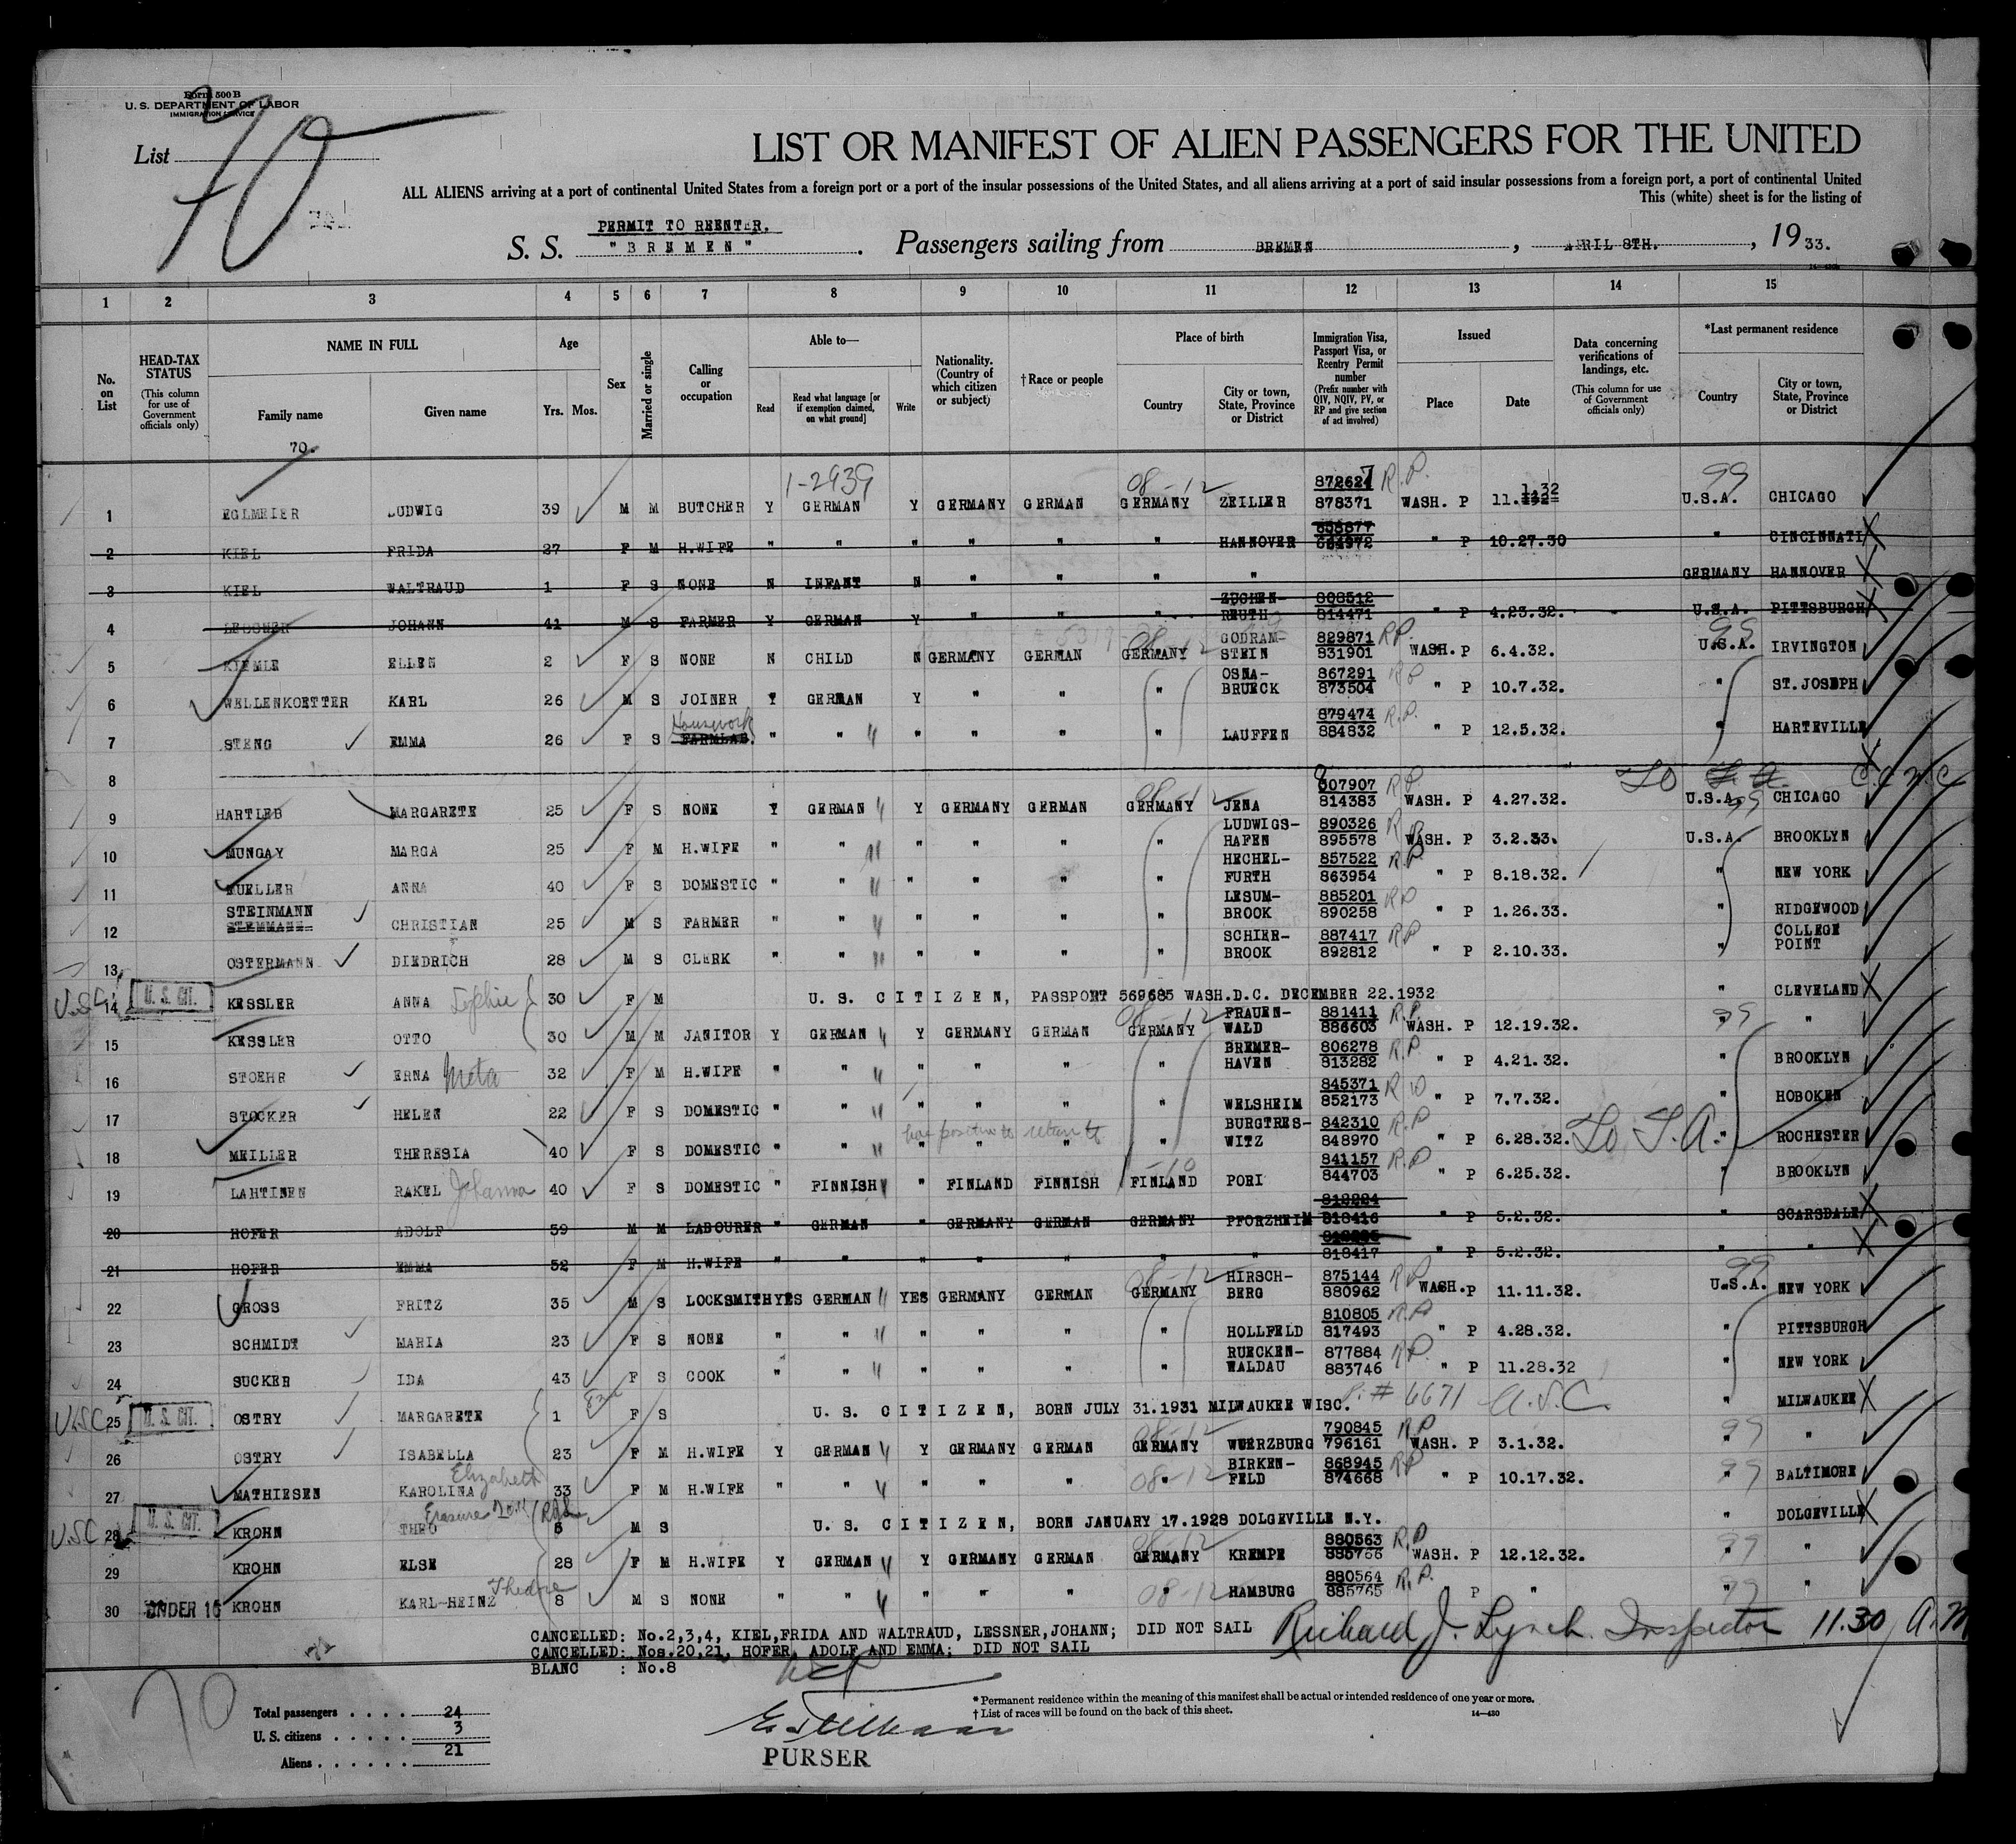 Form 500 B
U. S. DEPARTMENT OF LABOR
IMMIGRATION SERVICE
List 70
LIST OR MANIFEST OF ALIEN PASSENGERS FOR THE UNITED
ALL ALIENS arriving at a port of continental United States from a foreign port or a port of the insular possessions of the United States, and all aliens arriving at a port of said insular possessions from a foreign port, a port of continental United
This (white) sheet is for the listing of
PERMIT TO REENTER.
S. S. "BREMEN". Passengers sailing from BREMEN, APRIL 8TH., 1933.
1 2 3 4 5 6 7 8 9 10 11 12 13 14 15
No. on List
HEAD-TAX STATUS (This column for use of Government officials only)
NAME IN FULL Family name Given name
Age Yrs. Mos.
Sex
Married or single
Calling or occupation
Able to— Read Read what language [or if exemption claimed, on what ground] Write
Nationality. (Country of which citizen or subject)
† Race or people
Place of birth Country City or town, State, Province or District
Immigration Visa, Passport Visa, or Reentry Permit number (Prefix number with QIV, NQIV, PV, or RP and give section of act involved)
Issued Place Date
Data concerning verifications of landings, etc. (This column for use of Government officials only)
*Last permanent residence Country City or town, State, Province or District
70.
1-2939 08-12 872627 R.P. 99
1 EGLMEIER LUDWIG 39 M M BUTCHER Y GERMAN Y GERMANY GERMAN GERMANY ZEILIER 878371 WASH. P 11.1.32 U.S.A. CHICAGO
2 KIEL FRIDA 27 F M H.WIFE " " " " " " HANNOVER 858877 864972 " P 10.27.30 " CINCINNATI
3 KIEL WALTRAUD 1 F S NONE N INFANT N " " " " GERMANY HANNOVER
4 LESSNER JOHANN 41 M S FARMER Y GERMAN Y " " " ZUCHEN-REUTH 808512 814471 " P 4.23.32. U.S.A. PITTSBURGH
5 KIEMLE ELLEN 2 F S NONE N CHILD N GERMANY GERMAN GERMANY GODRAM-STEIN 829871 831901 R.P. WASH. P 6.4.32. 99 U.S.A. IRVINGTON
6 WELLENKOETTER KARL 26 M S JOINER Y GERMAN Y " " " OSNA-BRUECK 867291 873504 RP " P 10.7.32. " ST.JOSEPH
7 STENG EMMA 26 F S Housework FARMLAB. " " " " " " LAUFFEN 879474 884832 R.P. " P 12.5.32. " HARTEVILLE
8
9 HARTLEB MARGARETE 25 F S NONE Y GERMAN Y GERMANY GERMAN GERMANY JENA 807907 814383 R.P. WASH. P 4.27.32. U.S.A. 99 CHICAGO
10 MUNGAY MARGA 25 F M H.WIFE " " " " " " LUDWIGS-HAFEN 890326 895578 R.P. WASH. P 3.2.33. U.S.A. BROOKLYN
11 MUELLER ANNA 40 F S DOMESTIC " " " " " " HECHEL-FURTH 857522 863954 R.P. " P 8.18.32. " NEW YORK
12 STEINMANN CHRISTIAN 25 M S FARMER " " " " " " LESUM-BROOK 885201 890258 RP " P 1.26.33. " RIDGEWOOD
13 OSTERMANN DIEDRICH 28 M S CLERK " " " " " " SCHIER-BROOK 887417 892812 RP " P 2.10.33. " COLLEGE POINT
U.S.C. 14 U. S. CIT. KESSLER ANNA Sophie 30 F M U. S. CITIZEN, PASSPORT 569685 WASH.D.C. DECEMBER 22.1932 " CLEVELAND
15 KESSLER OTTO 30 M M JANITOR Y GERMAN Y GERMANY GERMAN GERMANY 08-12 FRAUEN-WALD 881411 886603 R.P. WASH. P 12.19.32. 99 " "
16 STOEHR ERNA Meta 32 F M H.WIFE " " " " " " BREMER-HAVEN 806278 813282 R.P. " P 4.21.32. " BROOKLYN
17 STOCKER HELEN 22 F S DOMESTIC " " " " " " WELSHEIM 845371 852173 " P 7.7.32. " HOBOKEN
has position to return to
18 MEILLER THERESIA 40 F S DOMESTIC " " " " " " BURGTRES-WITZ 842310 848970 R.P " P 6.28.32. " ROCHESTER
19 LAHTINEN RAKEL Johanna 40 F S DOMESTIC " FINNISH " FINLAND FINNISH FINLAND PORI 841157 844703 R.P " P 6.25.32. " BROOKLYN
20 HOFER ADOLF 59 M M LABOURER " GERMAN " GERMANY GERMAN GERMANY PFORZHEIM 818416 " P 5.2.32. " SCARSDALE
21 HOFER EMMA 52 F M H.WIFE " " " " " " " 818417 " P 5.2.32. " "
22 GROSS FRITZ 35 M S LOCKSMITH YES GERMAN YES GERMANY GERMAN GERMANY 08-12 HIRSCH-BERG 875144 880962 R.P WASH. P 11.11.32. 99 U.S.A. NEW YORK
23 SCHMIDT MARIA 23 F S NONE " " " " " " HOLLFELD 810805 817493 R.P " P 4.28.32. " PITTSBURGH
24 SUCKER IDA 43 F S COOK " " " " " " RUECKEN-WALDAU 877884 883746 R.P. " P 11.28.32 " NEW YORK
U.S.C. 25 U. S. CIT. OSTRY MARGARETE 1 F S U. S. CITIZEN, BORN JULY 31.1931 MILWAUKEE WISC. # 6671 U.S.C. " MILWAUKEE
26 OSTRY ISABELLA 23 F M H.WIFE Y GERMAN Y GERMANY GERMAN GERMANY 08-12 WUERZBURG 790845 796161 R.P WASH. P 3.1.32. 99 " "
27 MATHIESEN KAROLINA Elizabeth 33 F M H.WIFE " " " " " 08-12 " BIRKEN-FELD 868945 874668 RP " P 10.17.32. 99 " BALTIMORE
U.S.C. 28 U. S. CIT. KROHN THEO Erasure 5 M S U. S. CITIZEN, BORN JANUARY 17.1928 DOLGEVILLE N.Y. " DOLGEVILLE
29 KROHN ELSE 28 F M H.WIFE Y GERMAN Y GERMANY GERMAN GERMANY 08-12 KREMPE 880563 885766 R.P WASH. P 12.12.32. 99 " "
30 UNDER 16 KROHN KARL-HEINZ Thedore 8 M S NONE " " " " " 08-12 " HAMBURG 880564 885765 R.P. P " 99 " "
CANCELLED: No.2,3,4, KIEL,FRIDA AND WALTRAUD, LESSNER,JOHANN; DID NOT SAIL
CANCELLED: Nos.20,21, HOFER, ADOLF AND EMMA; DID NOT SAIL
BLANC : No.8
Richard J. Lynch Inspector 11.30 A.M
70
Total passengers . . . . 24
U. S. citizens . . . . . 3
Aliens . . . . . . 21
PURSER
* Permanent residence within the meaning of this manifest shall be actual or intended residence of one year or more.
† List of races will be found on the back of this sheet.
14—430